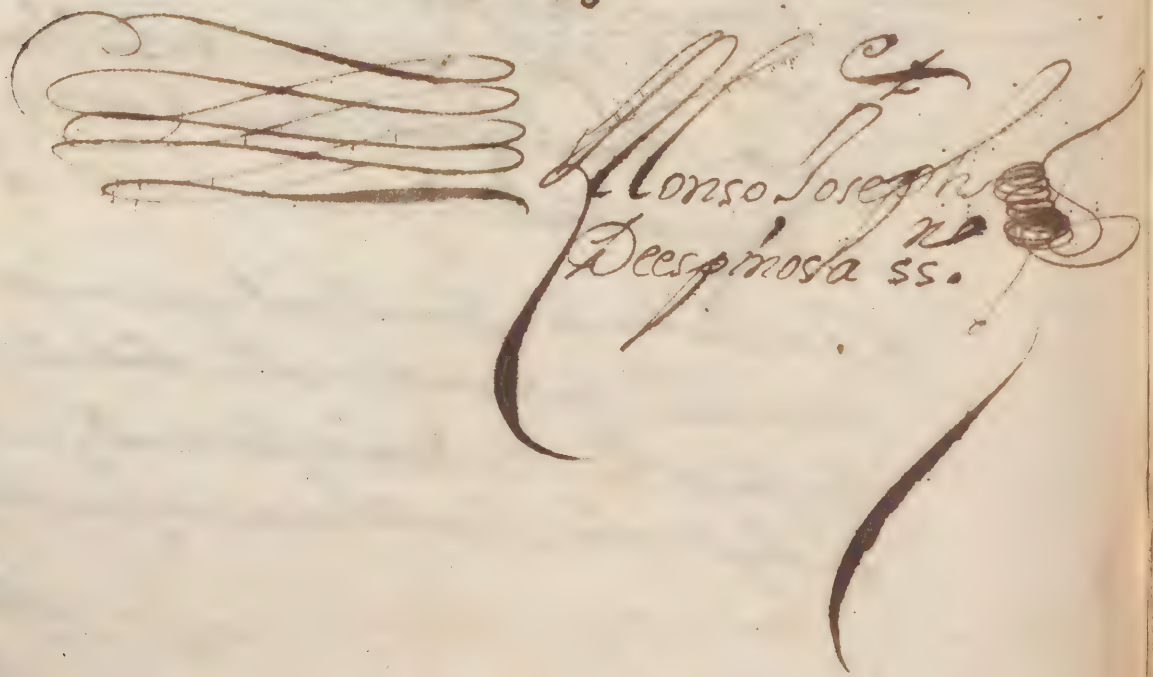 Alonso Joseph
Deespinosa ss.no